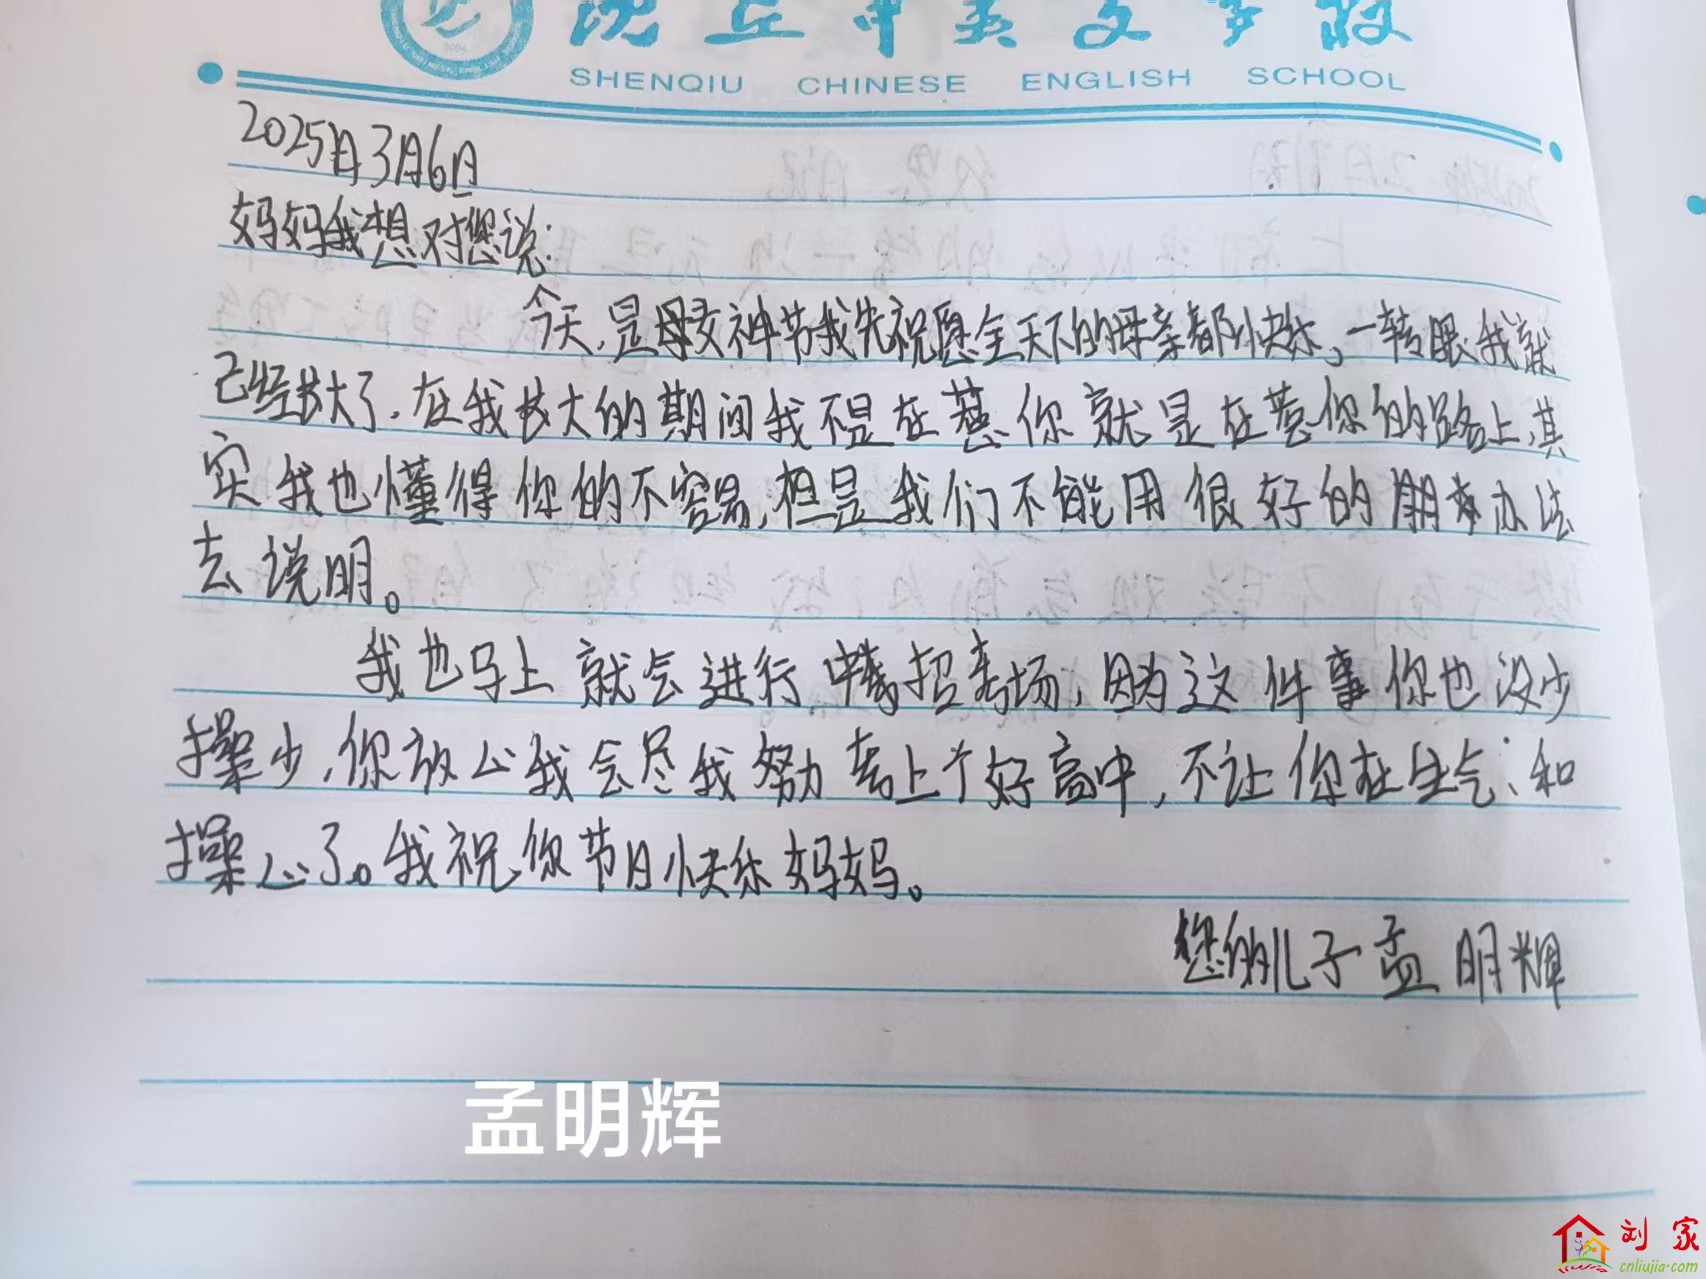 沈丘中英文学校
SHENQIU CHINESE ENGLISH SCHOOL
2025年3月6日
妈妈我想对您说:
今天,是母女神节我先祝愿全天下的母亲都快乐,一转眼我就
已经长大了.在我长大的期间我不是在惹你就是在惹你的路上,其
实我也懂得你的不容易,但是我们不能用很好的办法
去说明。
我也马上就会进行中招考场,因为这件事你也没少
操少,你放心我会尽我努力考上个好高中,不让你在生气、和
操心了。我祝你节日快乐妈妈。
您的儿子孟明辉
孟明辉
刘家
cnliujia.com